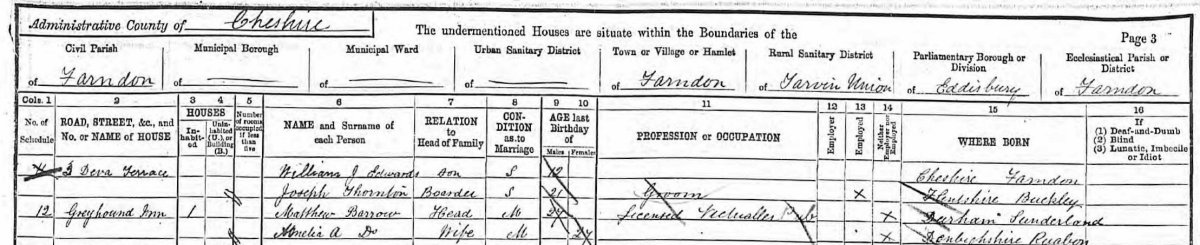 Administrative County of Cheshire
The undermentioned Houses are situate within the Boundaries of the
Page 3
Civil Parish of Farndon
Municipal Borough of
Municipal Ward of
Urban Sanitary District of
Town or Village or Hamlet of Farndon
Rural Sanitary District of Tarvin Union
Parliamentary Borough or Division of Eddisbury
Ecclesiastical Parish or District of Farndon
Cols. 1 2 3 4 5 6 7 8 9 10 11 12 13 14 15 16
No. of Schedule
ROAD, STREET, &c., and No. or NAME of HOUSE
HOUSES
Inhabit-ed
Unin-habited (U.), or Building (B.)
Number of rooms occupied if less than five
NAME and Surname of each Person
RELATION to Head of Family
CON-DITION as to Marriage
AGE last Birthday of
Males Females
PROFESSION or OCCUPATION
Employer
Employed
Neither Employer nor Employed
WHERE BORN
If
(1) Deaf-and-Dumb
(2) Blind
(3) Lunatic, Imbecile or Idiot
3 Deva Terrace William J Edwards Son S 12 Cheshire Farndon
Joseph Thornton Boarder S Groom X Flintshire Buckley
12 Greyhound Inn 1 Matthew Barrow Head M 27 Licensed Victualler Pub X Durham Sunderland
4 Amelia A Do Wife M 27 X Denbighshire Ruabon